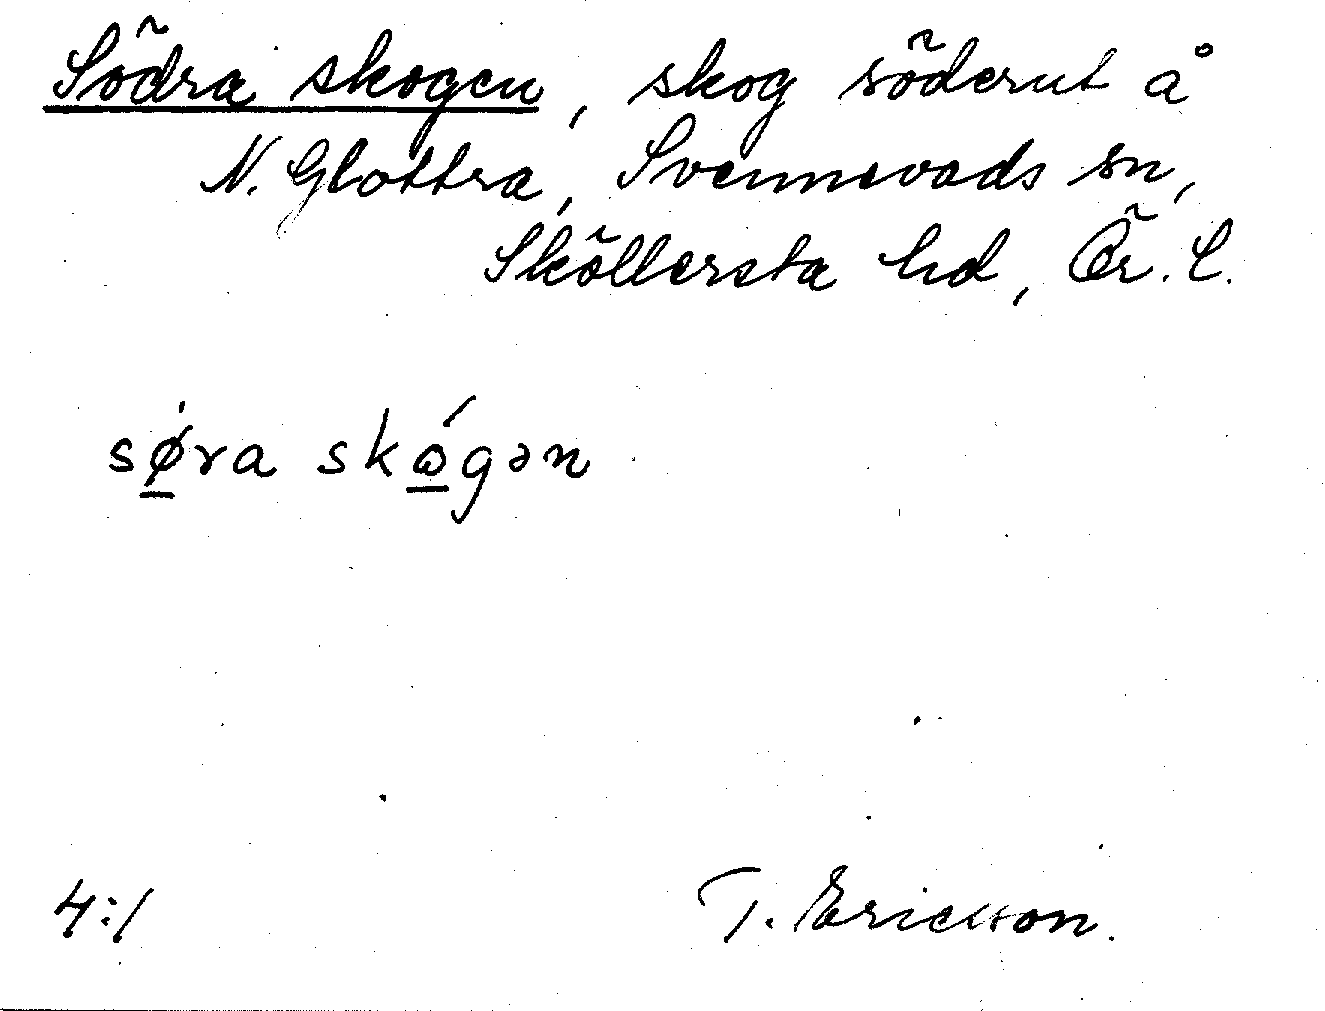 Södra skogen, skog söderut å
N. Glottra, Svennevads sn,
Sköllersta hd, Ör. L.
sǿ̱ra skɷ̱́gən
4:1
T. Ericsson.